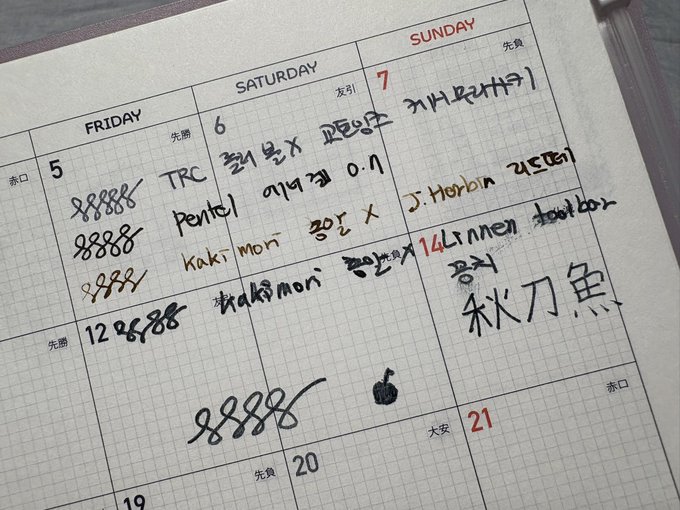 FRIDAY SATURDAY SUNDAY
赤口 5 先勝 6 友引 7 先負
TRC 롤러볼 X 교토잉크 케시무라사키
Pentel 에너겔 0.7
kakimori 종알 X J.Herbin 리드떼
先勝 12 先負 14
kakimori 종알 X Linnen toolbar
꽁치
秋刀魚
19 先負 20 大安 21 赤口